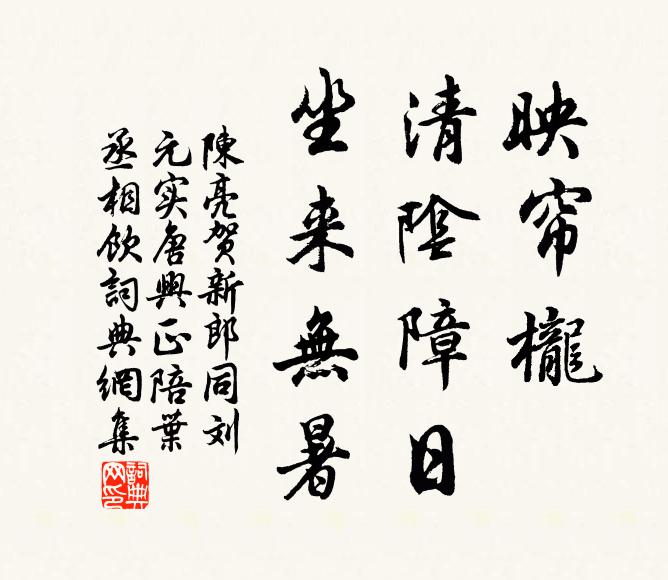 映帘櫳
清陰障日
坐来無暑
陳亮贺新郎同刘
元实唐興正陪葉
丞相飲詞典網集
詞典网印